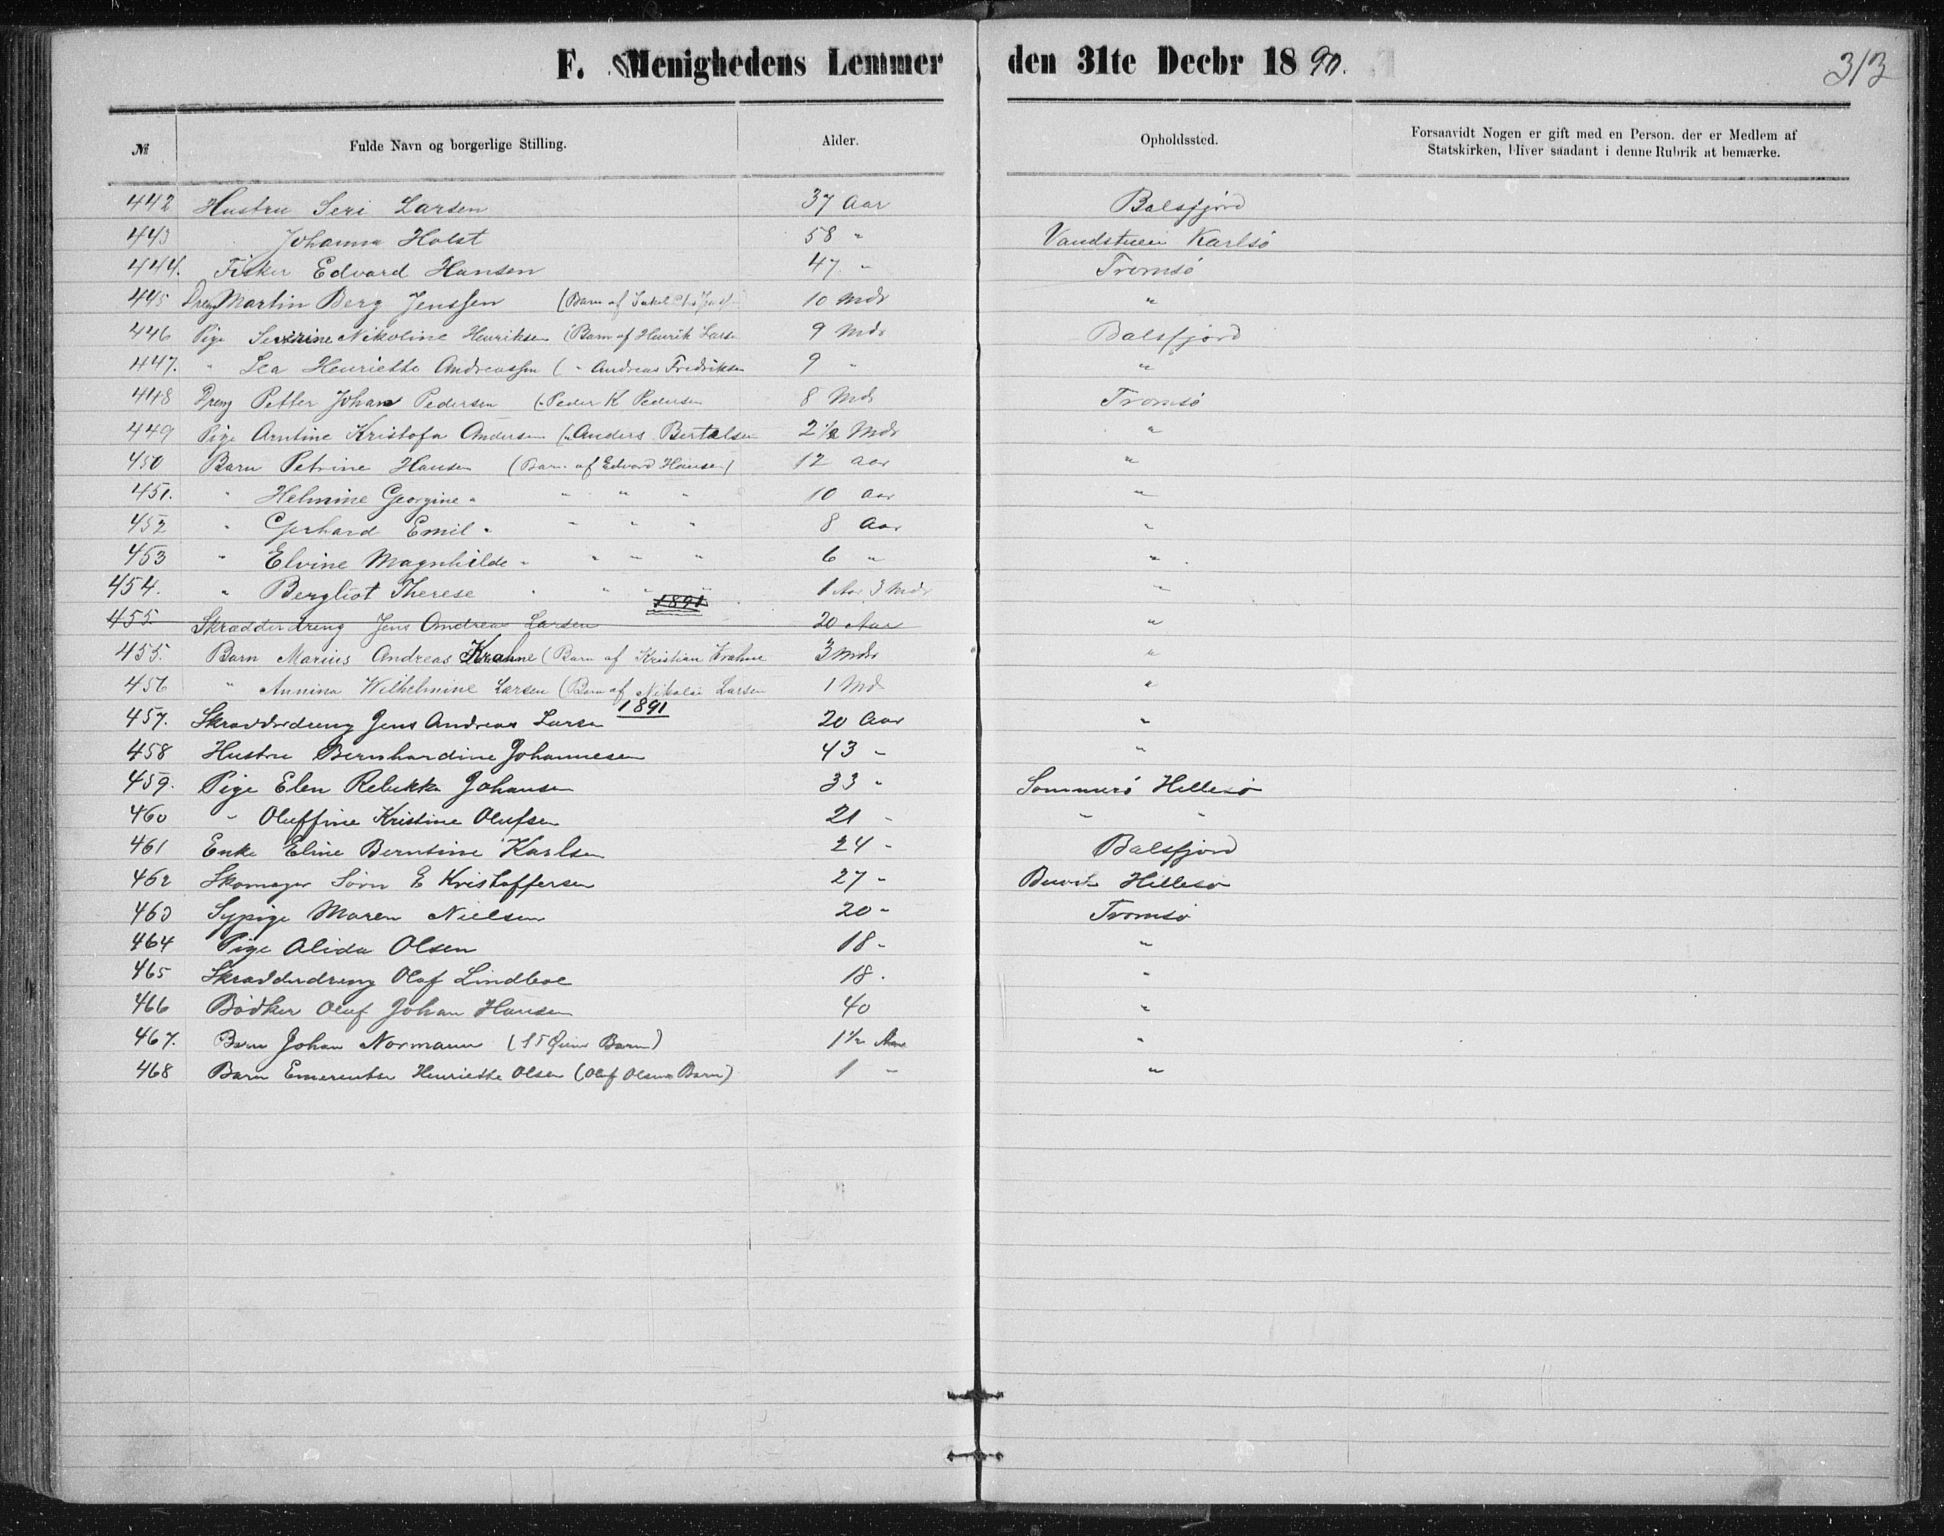 F. Menighedens Lemmer den 31te Decbr 1890.
313
№ Fulde Navn og borgerlige Stilling. Alder. Opholdssted. Forsaavidt Nogen er gift med en Person, der er Medlem af
Statskirken, bliver saadant i denne Rubrik at bemærke.
442 Hustru Seri Larsen 37 Aar Balsfjord
443 Johanna Holst 58 " Karlsö
444. Fisker Edvard Hansen 47 " Tromsö
445 Dreng Martin Berg Jenssen (Barn af 10 Mdr "
446 Pige Severine Nikoline Henriksen (Barn af Henrik Larse 9 Mdr Balsfjord
447. " Lea Henriette Andreassen ( " Andreas Fredriksen 9 " "
448 Dreng Petter Johan Pedersen ( " Peder K Pedersen 8 Mdr Tromsö
449 Pige Arntine Kristofa Andersen ( " Anders Bertelsen 2 1/2 Mdr "
450 Barn Petrine Hansen (Barn af Edvard Hansen) 12 aar "
451. " Helmine Georgine " " " " 10 Aar "
452 " Gerhard Emil " " " " 8 Aar "
453 " Elvine Magnhilde " " " " 6 " "
454. " Bergliot Therese " " " " 1 Aar 3 Mdr "
1891
455. Skrædderdreng Jens Andreas Larsen 20 Aar "
455. Barn Marius Andreas Krahne (Barn af Kristian Krahne 3 Mdr "
456 " Annina Wilhelmine Larsen (Barn af Nikolai Larsen 1 Md "
1891
457. Skrædderdreng Jens Andreas Larse 20 Aar "
458 Hustru Bernhardine Johannesen 43 " "
459. Pige Elen Rebekka Johansen 33 " Sommerö Hillesö
460 " Oluffine Kristine Olufsen 21 " " "
461 Enke Eline Berntine Karlsen 24 " Balsfjord
462 Skomager Sörn E Kristoffersen 27 " Hillesö
463 Sypige Maren Nielsen 20 " Tromsö
464 Pige Alida Olsen 18 " "
465 Skrædderdreng Olaf Lindboe 18 " "
466 Bödker Oluf Johan Hansen 40 "
467. Barn Johan Normann ( Barn) 1 1/2 Aar "
468 Barn Emerentse Henriette Olsen (Oluf Olsens Barn) 1 " "